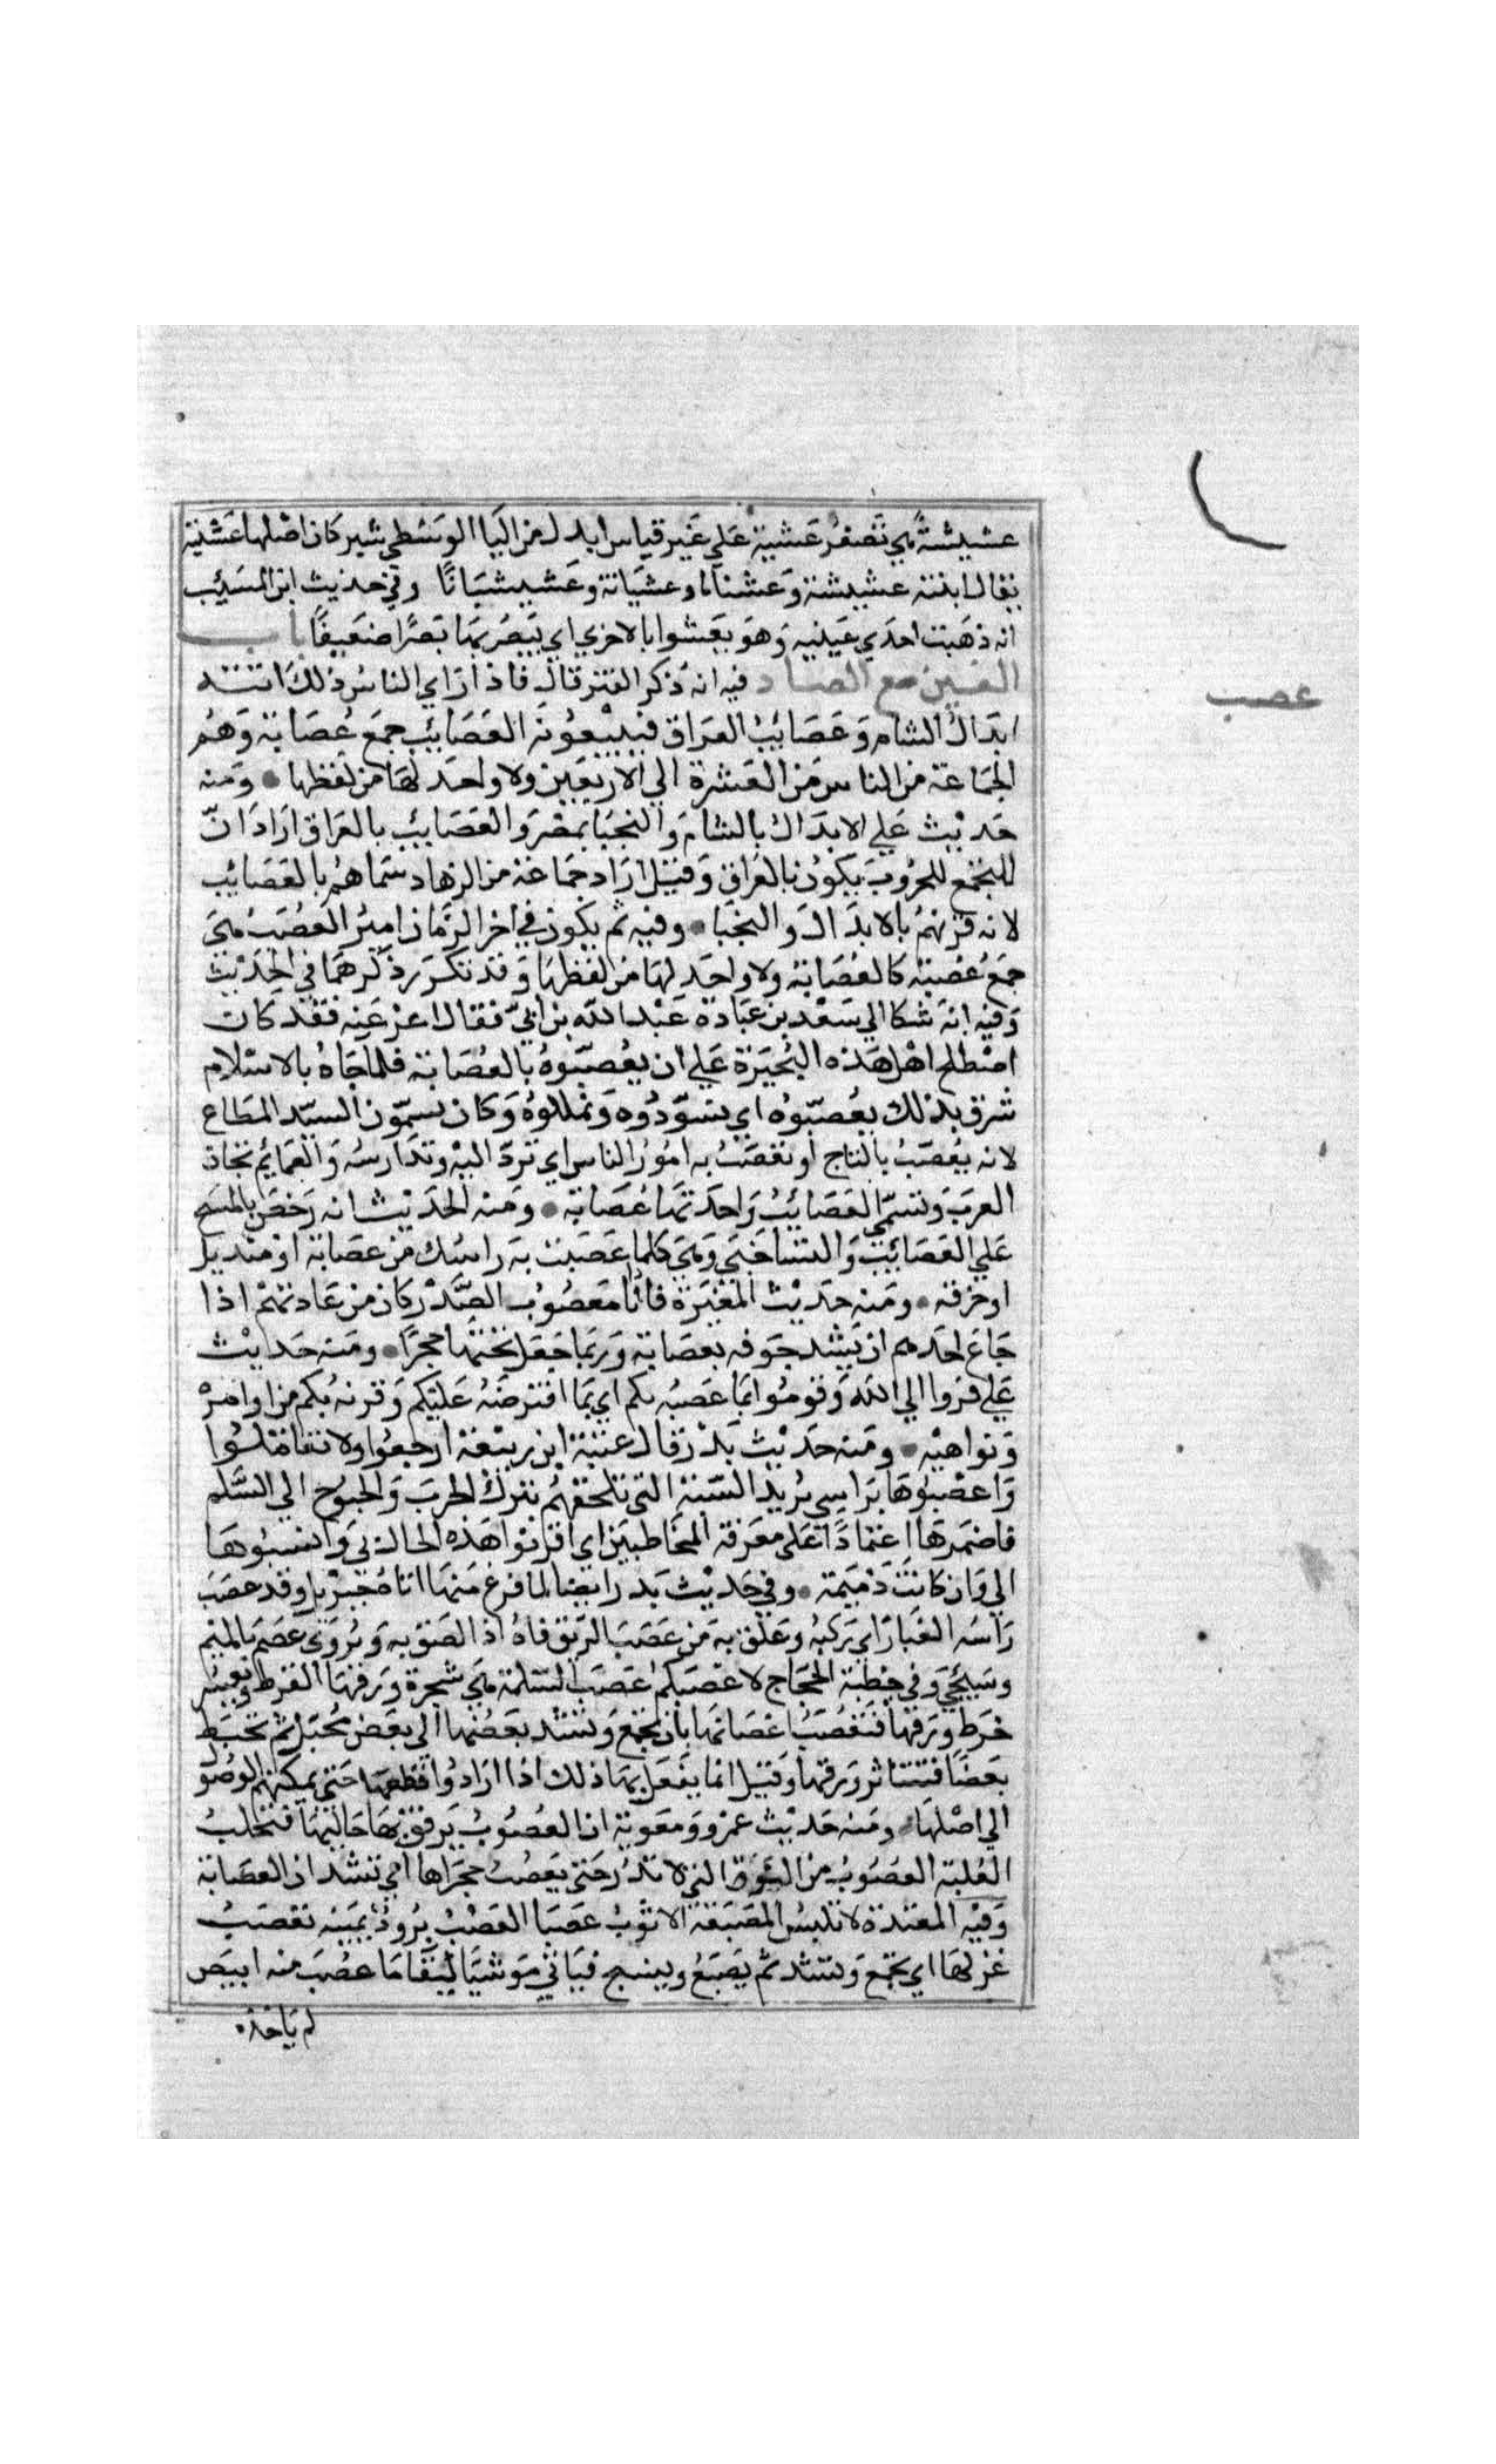 عشيشةً هي تصغيرُ عَشية عَلي غَير قياس ابدل من اليَا الوسَطي شين كان اصْلها عَشيّة
يقال ابتته عشيشة وَعشنانا وعشيَانة وعَشيشيَانًا وفي حديث ابن المسَيّب
انه ذهَبت احدَي عَينيه وَهو يعَشوا بالاخري اي يَبصُر بهَا بَصرًا ضَعيفًا باب
العَين مع الصاد فيه انه ذكر الفتن قال فاذا رَاي الناسُ ذلك اتته
ابَدالُ الشام وَعَصَائبُ العرَاق فيَبيعُونه العَصَائب جمعَ عُصَابة وَهُم
الجمَاعة من الناس من العَشرة الي الاربعَين ولا واحَد لهَا من لفظها • وَمنه
حَديث عَلي الابدَال بالشام وَالنجبَا بمصْر وَالعَصَايب بالعرَاق ارَادَ انّ
التجمّع للحرُوبَ يَكون بالعَراق وَقيْل ارَاد جمَاعَة من الزهاد سَماهُم بالعَصَايب
لانه قَرنهمُ بالابدَال وَالنجَبا • وفيه ثم يكون في اخر الزمَان اميرُ العُصَبُ هيَ
جمعُ عُصْبَة كالعُصَابة ولا واحَد لهَا من لفظهَا وَقدَ تكرّر ذكرهمَا في الحَدَيث
وَفيه انه شكا الي سَعْد بن عبَادة عَبْد الله بن ابيّ فقال اعْف عَنه فقد كان
اصْطلح اهْل هَذه البُحَيرَة عَلي ان يُعصّبُوهُ بالعُصَابة فلما جَاءُ بالاسْلام
شرق بذلك يعُصّبوُه اي يسَوّدُوه وَيملكوُهُ وَكان يسمّون السيّد المطاع
لانه يُعصّبُ بالتاج او تعَصّبُ به امُورُ الناس اي ترَدّ اليْه وتدَار به وَالعمَايُم تيجان
العرَبَ وتسَمّي العَصَايبُ وَاحدَتهَا عصَابة • وَمنه الحَدَيث انه رَخصَ بالمسَح
عَلي العَصَايبَ وَالتسَاخَين وَهيَ كلما عَصَبت بهَ رَاسَك من عصَابة اوْ منْديل
او خرَقه • وَمنه حَدَيث المغْيَرة فانا مَعصُوبُ الصّدْر كان من عَادَتهُم اذا
جَاعَ احَدهم ان يَشد جَوفه بعصَابة وَرَبما جَعَل تحتهَا حجرًا • وَمنه حَديث
عَلي فرَوا الي الله وَقومُوا بمَا عَصَبُه بكم اي بمَا افترضَهُ عَليكم وَقرنهُ بكم من اوامرْ
وَنواهيْه • وَمنه حَديث بَدْر قال عتبَة ابن ربيْعَة ارجعُوا ولا تقاتلوُا
وَاعصْبوُهَا برَاسي يُريْد السُّبّة التي تلحقهُم بتركْ الحرَب وَالجنوح الي السَّلم
فاضمَرهَا اعتمادًا عَلي معرَفة المخَاطبَين اي اقرنوا هَذه الحال بي وَانسبُوهَا
الي وَان كانتَ ذميَمة • وفي حَديْث بَدر ايضا لما فرغ منهَا اتاهُ جبرْيل وقد عصَبَ
رَاسَه الغبَارُ اي رَكبُه وعَلق بهَ من عَصَبَ الرّيق فاهُ اذا لصَق به وَيُروَي عصَمَ بالميم
وسَيجَي وَفي خُطبَة الحجَاج لاعصْبَنكمُ عَصَبَ السَلمَة هيَ شجرة وَرقهَا القرظ ويَعسُر
خرَط ورَقها فتُعْصَبُ اغصَانهَا بان تجمعَ وَيشدّ بعَضُهَا الي بعَض بحبَل ثم تخبَط
بعَصَا فتتنَاثر وَرقها وَقيَل انما يفَعل بهَا ذلك اذا ارَادوُا قطعهَا حَتي يمكنهم الوصُول
الي اصْلهَا • ومَنه حَديْث عمْرو وَمعَوية ان العُصُوبُ يَرفق بهَا حَالبهَا فتحلبُ
العُلبة العَصُوبُ من النّوق التي لا تدُرّ حَتي يعُصَبُ فخذاها اي تشد ان بالعصَابة
وَفيْه المعتدّة لا تلبسُ المصَبّغة الا ثوْبُ عَصَبْ العَصْبُ برُودُ يمنيه يعصَبُ
غزلهَا اي يجمَع وَيشد ثم يَصَبغُ وينسج فيَاتي مَوشيَا لبقَا مَا عصُبَ منه ابيَض
لم يَاخذه
عصب